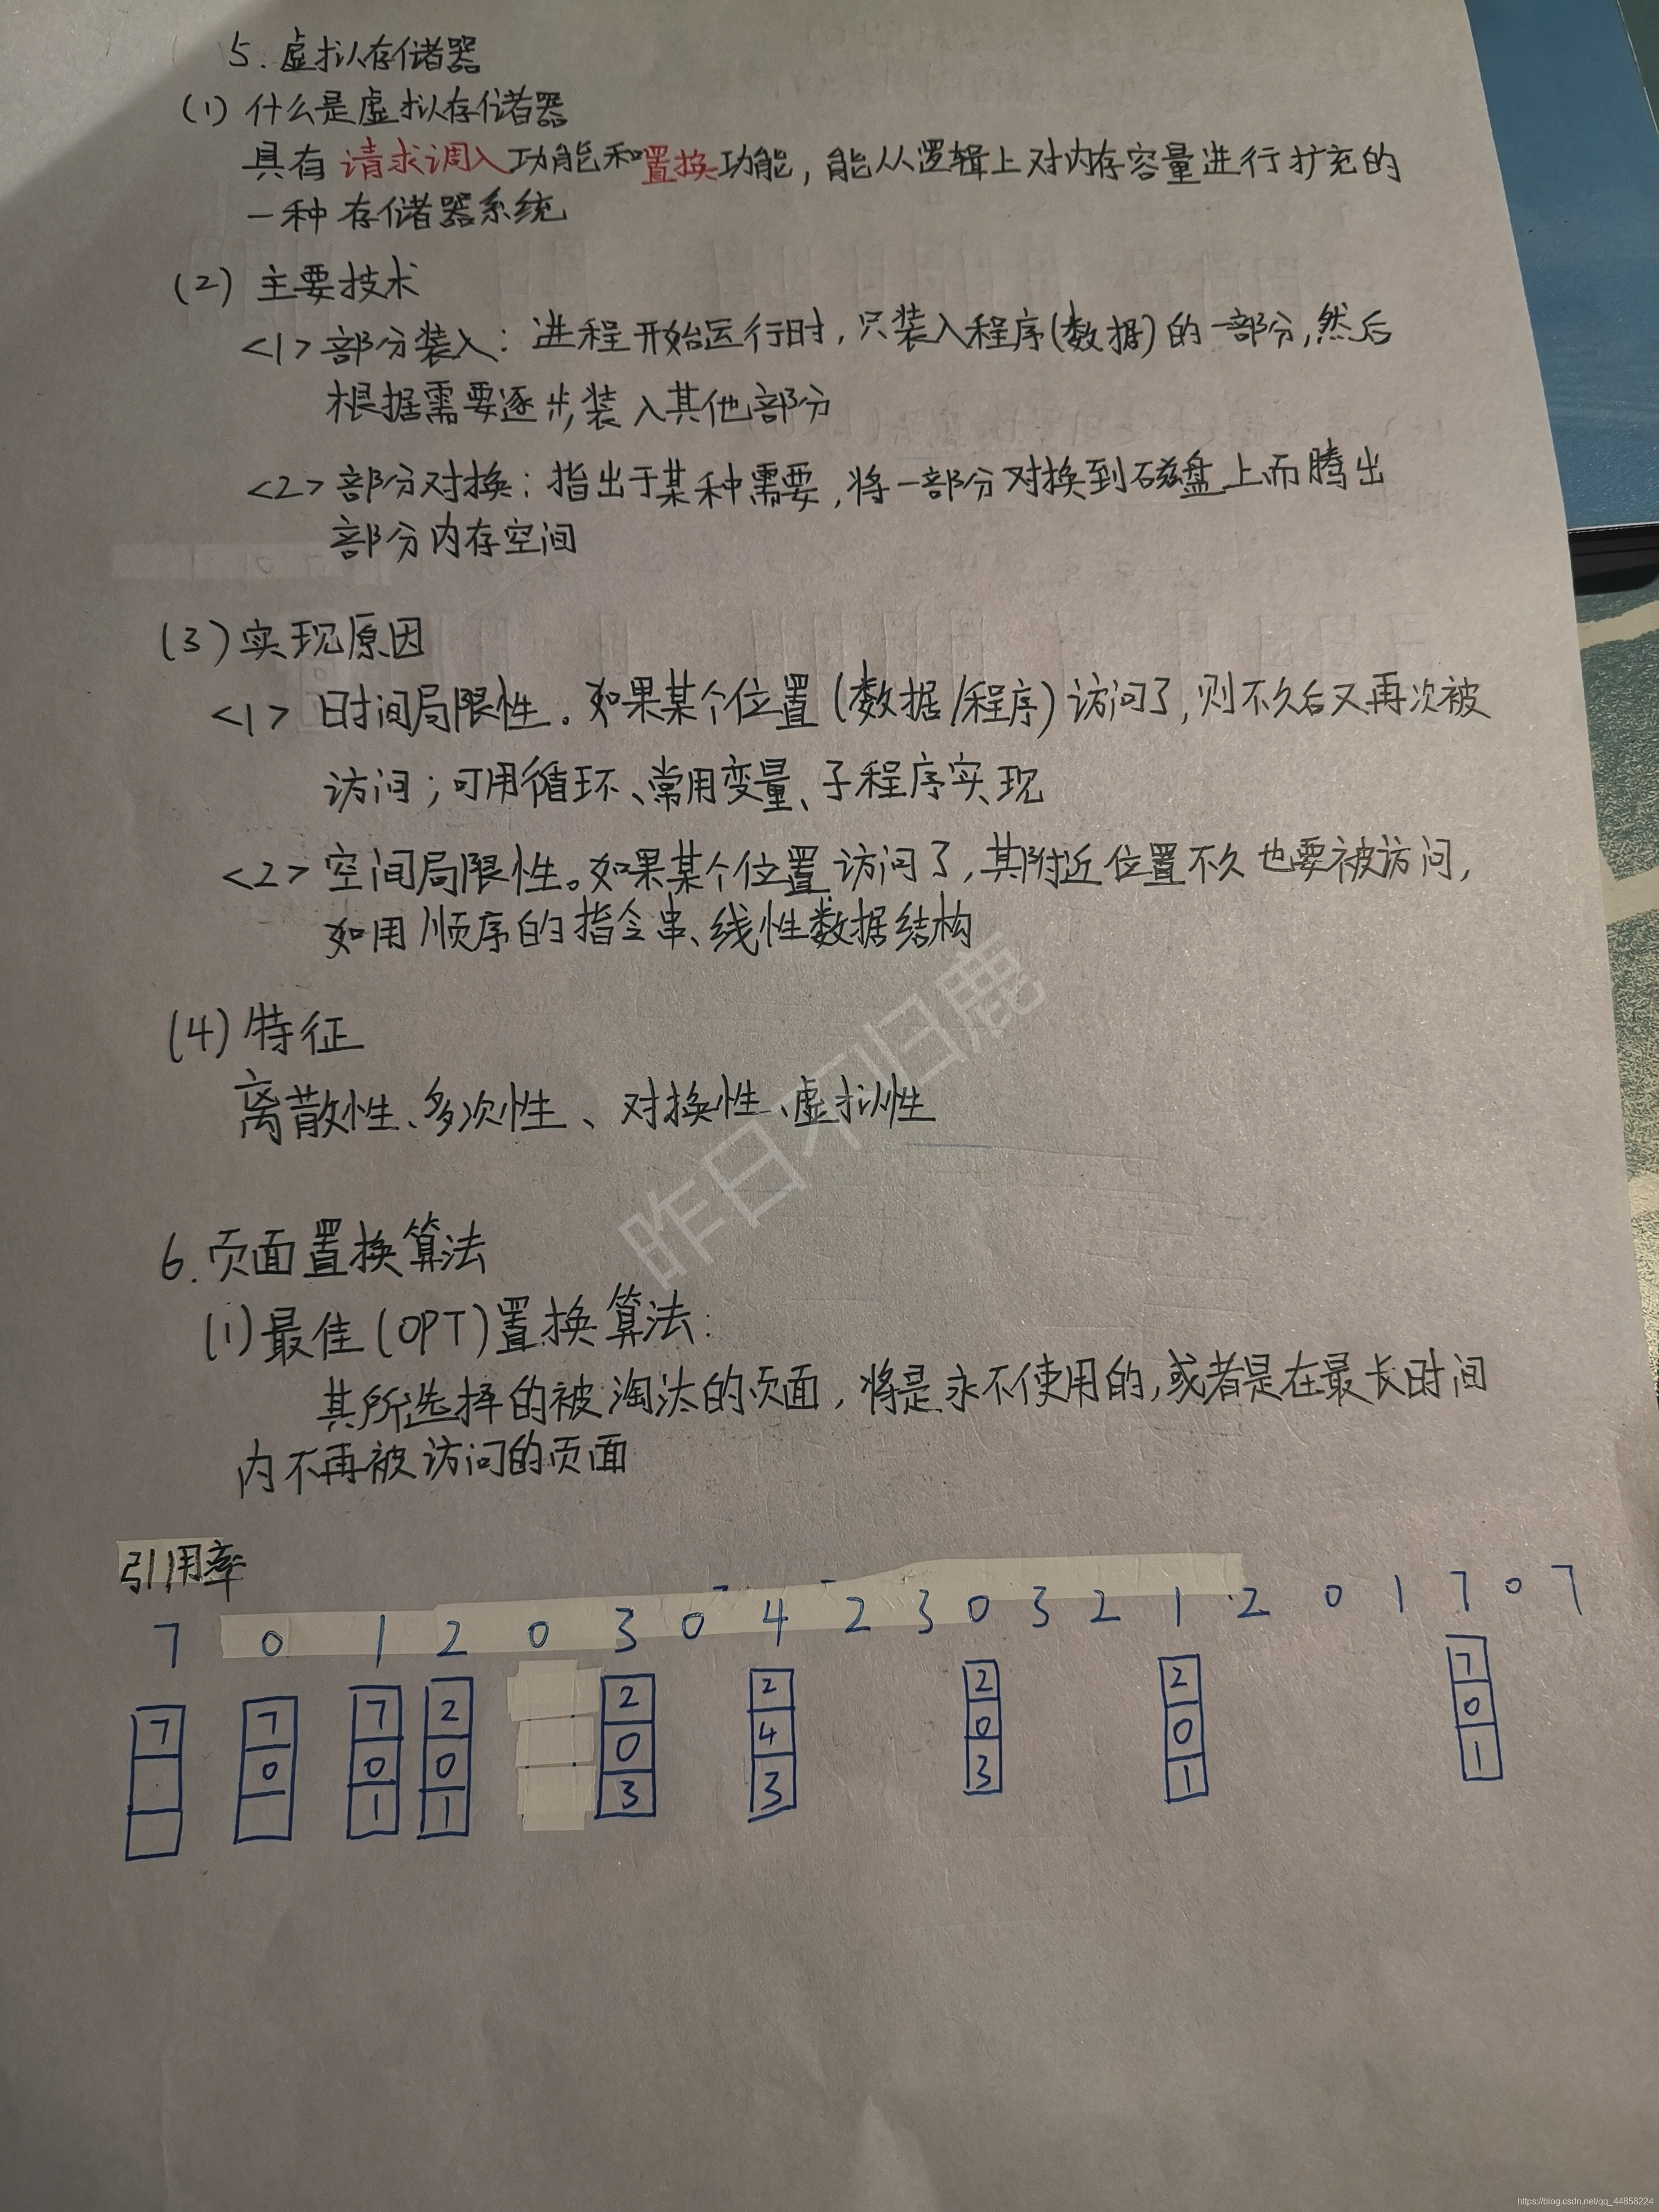 5. 虚拟存储器
(1) 什么是虚拟存储器
具有请求调入功能和置换功能，能从逻辑上对内存容量进行扩充的
一种存储器系统
(2) 主要技术
<1> 部分装入：进程开始运行时，只装入程序(数据)的一部分，然后
根据需要逐步装入其他部分
<2> 部分对换：指出于某种需要，将一部分对换到磁盘上而腾出
部分内存空间
(3) 实现原因
<1> 时间局限性。如果某个位置(数据/程序)访问了，则不久后又再次被
访问；可用循环、常用变量、子程序实现
<2> 空间局限性。如果某个位置访问了，其附近位置不久也要被访问，
如用顺序的指令串、线性数据结构
(4) 特征
离散性、多次性、对换性、虚拟性
昨日不归鹿
6. 页面置换算法
(1) 最佳(OPT)置换算法：
其所选择的被淘汰的页面，将是永不使用的，或者是在最长时间
内不再被访问的页面
引用率
7 0 1 2 0 3 0 4 2 3 0 3 2 1 2 0 1 7 0 7
7 7 7 2 2 2 2 2 7
0 0 0 0 4 0 0 0
1 1 3 3 3 1 1
https://blog.csdn.net/qq_44858224